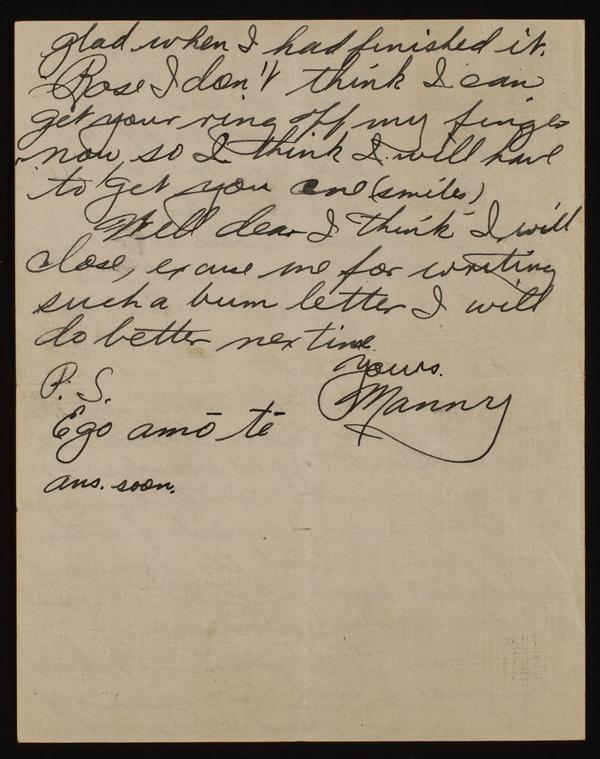 glad when I had finished it.
Rose I don't think I can
get your ring off my finger
now, so I think I will have
to get you one (smiles)
Well dear I think I will
close, excuse me for writing
such a bum letter I will
do better nex time
Yours.
Manny
P. S.
Ego amō tē
ans. soon.